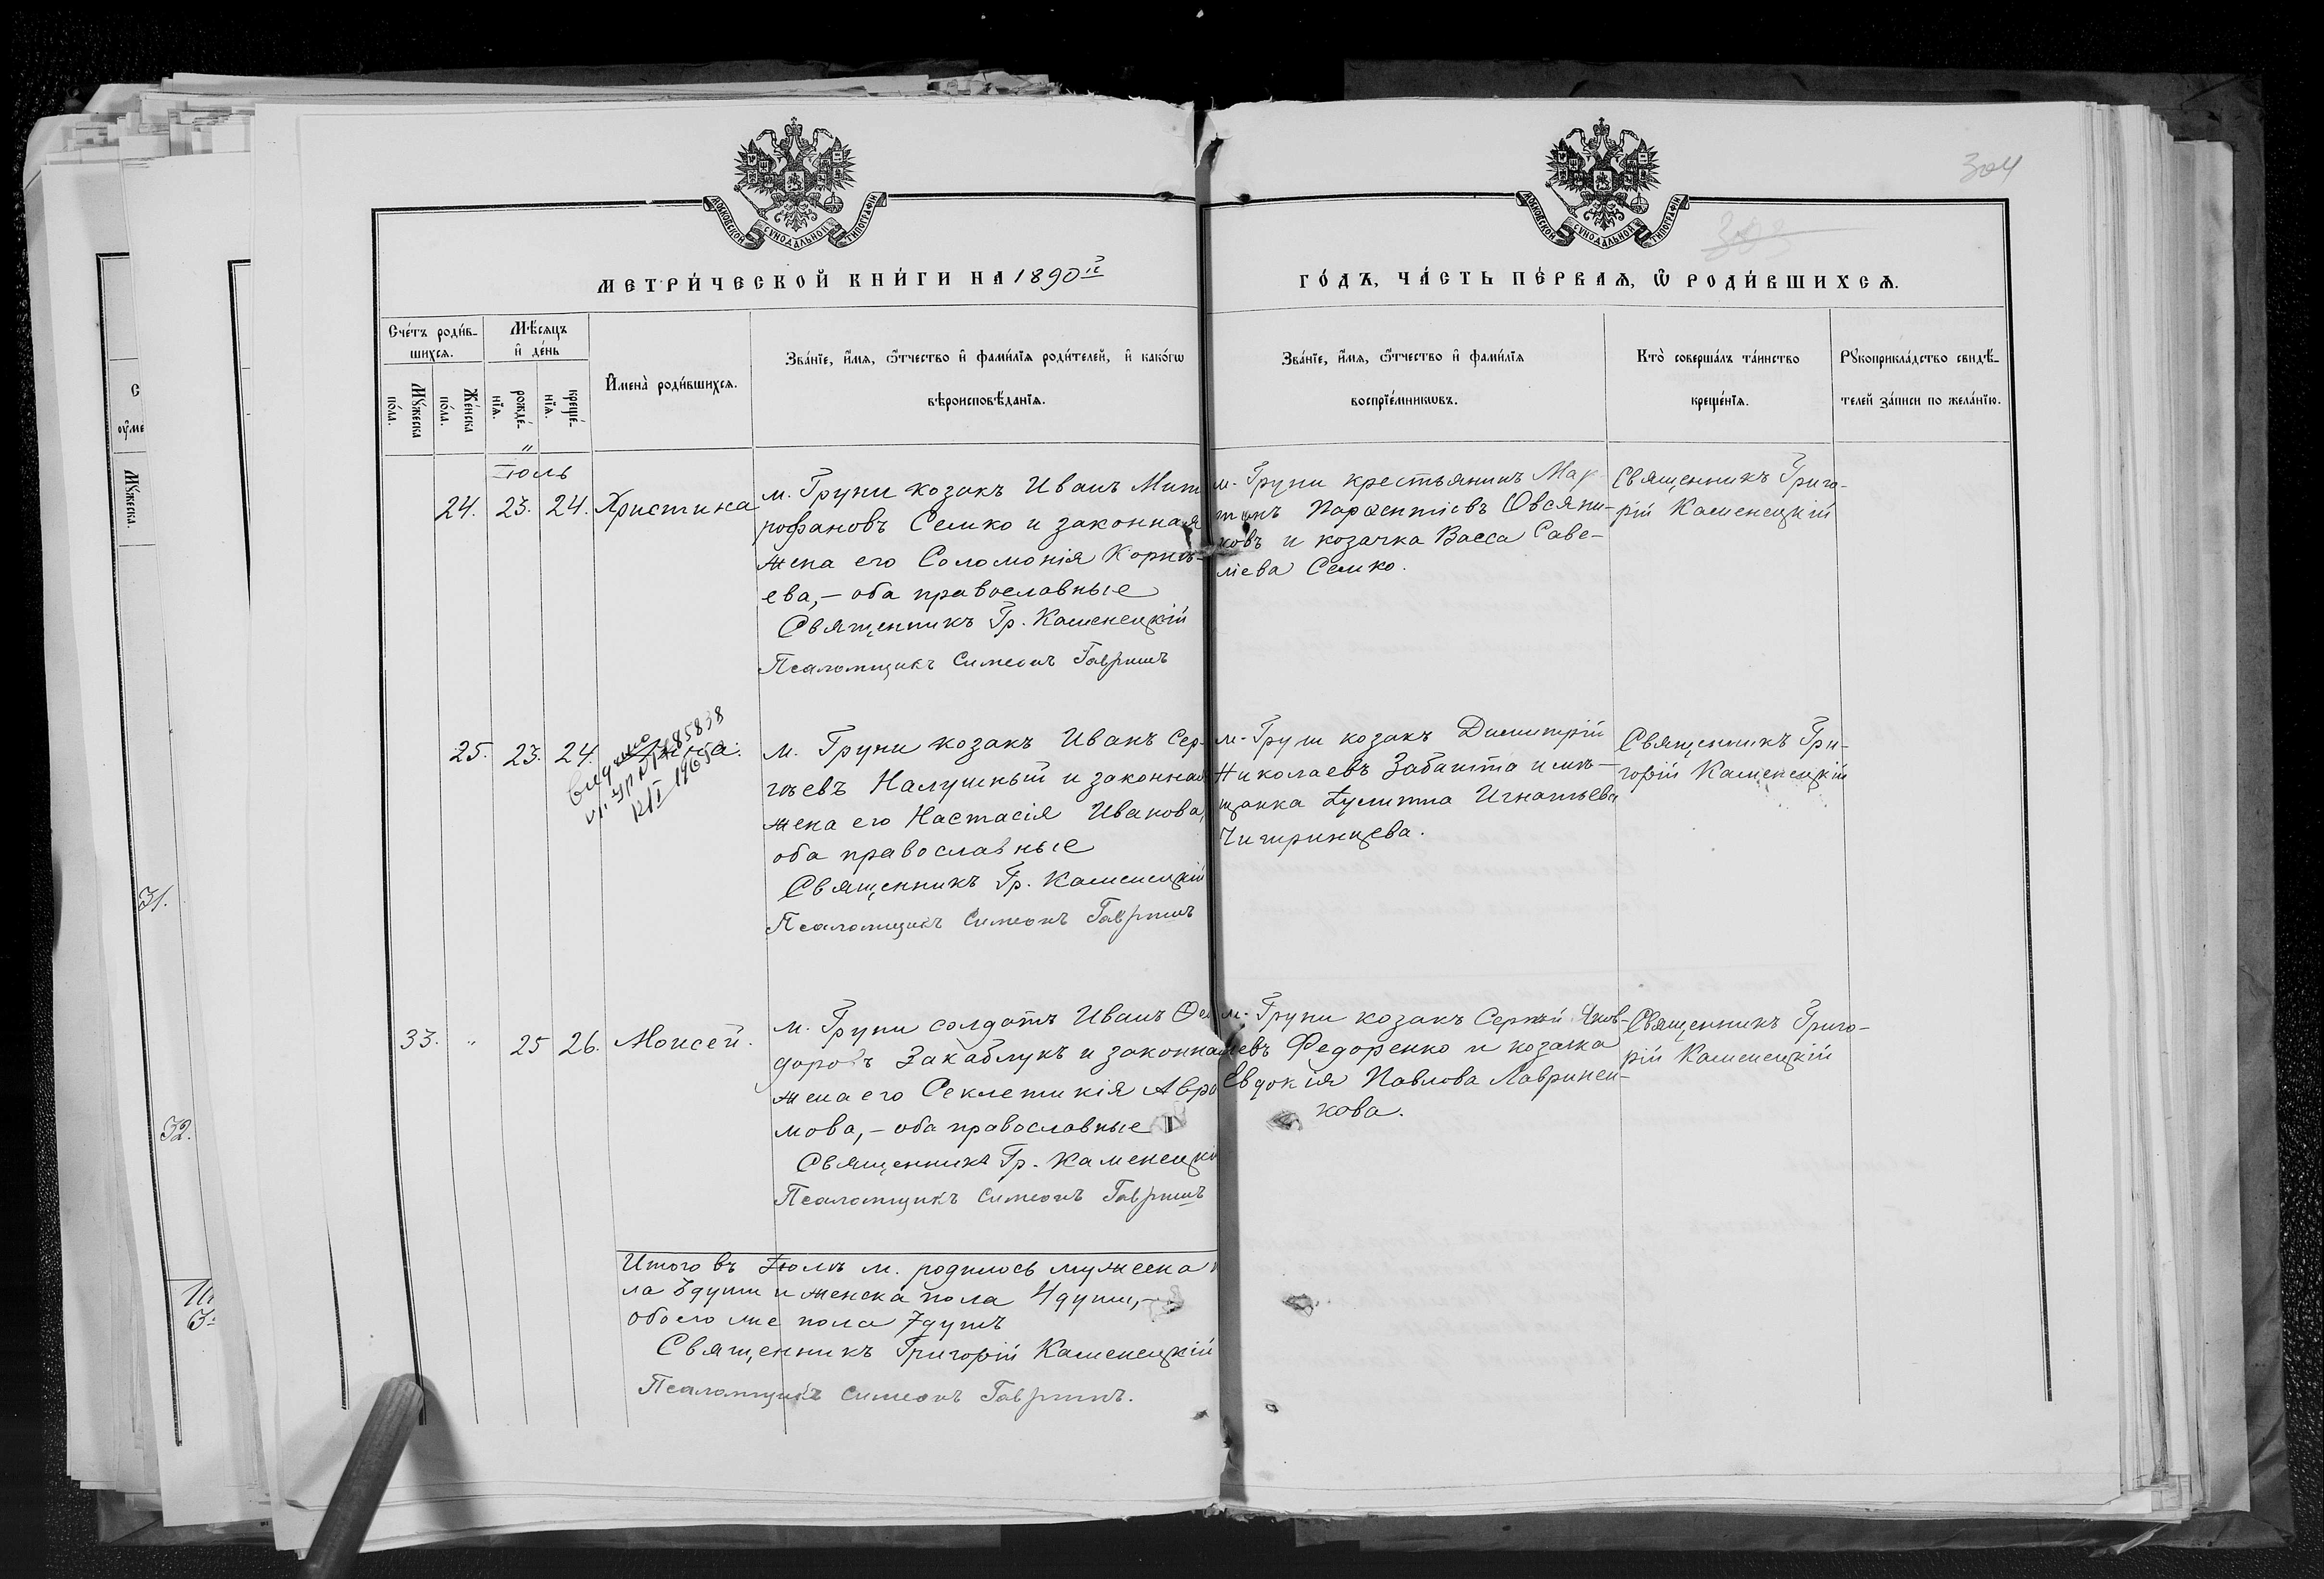 304
МОСКОВСКОЙ СѴНОДАЛЬНОЙ ТИПОГРАФІИ
МОСКОВСКОЙ СѴНОДАЛЬНОЙ ТИПОГРАФІИ
МЕТРИ́ЧЕСКОЙ КНИ́ГИ НА 1890й
ГО́ДЪ, ЧА́СТЬ ПЕ́РВАѦ, Ѽ РОДИ́ВШИХСѦ.
Сче́тъ роди́в-
шихсѧ.
Мѣ́сѧцъ
и҆ де́нь
Мꙋ́жеска
по́ла.
Же́нска
по́ла.
рожде́-
нїѧ.
креще́-
нїѧ.
И҆мена̀ роди́вшихсѧ.
Зва́нїе, и҆́мѧ, ѻ҆́тчество и҆ фами́лїѧ роди́телей, и҆ како́гѡ
вѣроисповѣ́данїѧ.
Зва́нїе, и҆́мѧ, ѻ҆́тчество и҆ фами́лїѧ
воспрїе́мникѡвъ.
Кто̀ соверша́лъ та́инство
креще́нїѧ.
Рꙋкоприкла́дство свидѣ́-
телей за́писи по жела́нїю.
Іюль
24. 23. 24. Христина
м. Груни козакъ Иванъ Мит
рофановъ Семко и законная
жена его Соломонія Корнѣ-
ева, – оба православные
Священникъ Гр. Каменецкій
Псаломщикъ Симеонъ Гавришъ
м. Груни крестьянинъ Мар
тинъ Парѳентіевъ Овсяни-
ковъ и козачка Васса Саве-
ліева Семко.
Священникъ Григо-
рій Каменецкій
25. 23. 24.
видано
1965
м. Груни козакъ Иванъ Сер-
гѣевъ Налушный и законная
жена его Настасія Иванова,
оба православные
Священникъ Гр. Каменецкій
Псаломщикъ Симеонъ Гавришъ
м. Груни козакъ Димитрій
Николаевъ Забашта и мѣ-
щанка Іулитта Игнатьева
Чигринцева.
Священникъ Гри-
горій Каменецкій
33. " 25 26. Моисей.
м. Груни солдатъ Иванъ Ѳео
доровъ Закаблукъ и законная
жена его Секлетикія Авра
мова, – оба православные
Священникъ Гр. Каменецкій
Псаломщикъ Симеонъ Гавришъ
м. Груни козакъ Сергѣй Яков-
левъ Федоренко и козачка
Евдокія Павлова Лавринен-
кова.
Священникъ Григо-
рій Каменецкій
Итого въ Іюлѣ м. родилось мужеска по
ла 3 души и женска пола 4 души, –
обоего же пола 7 душъ
Священникъ Григорій Каменецкій
Псаломщикъ Симеонъ Гавришъ.
31.
32.